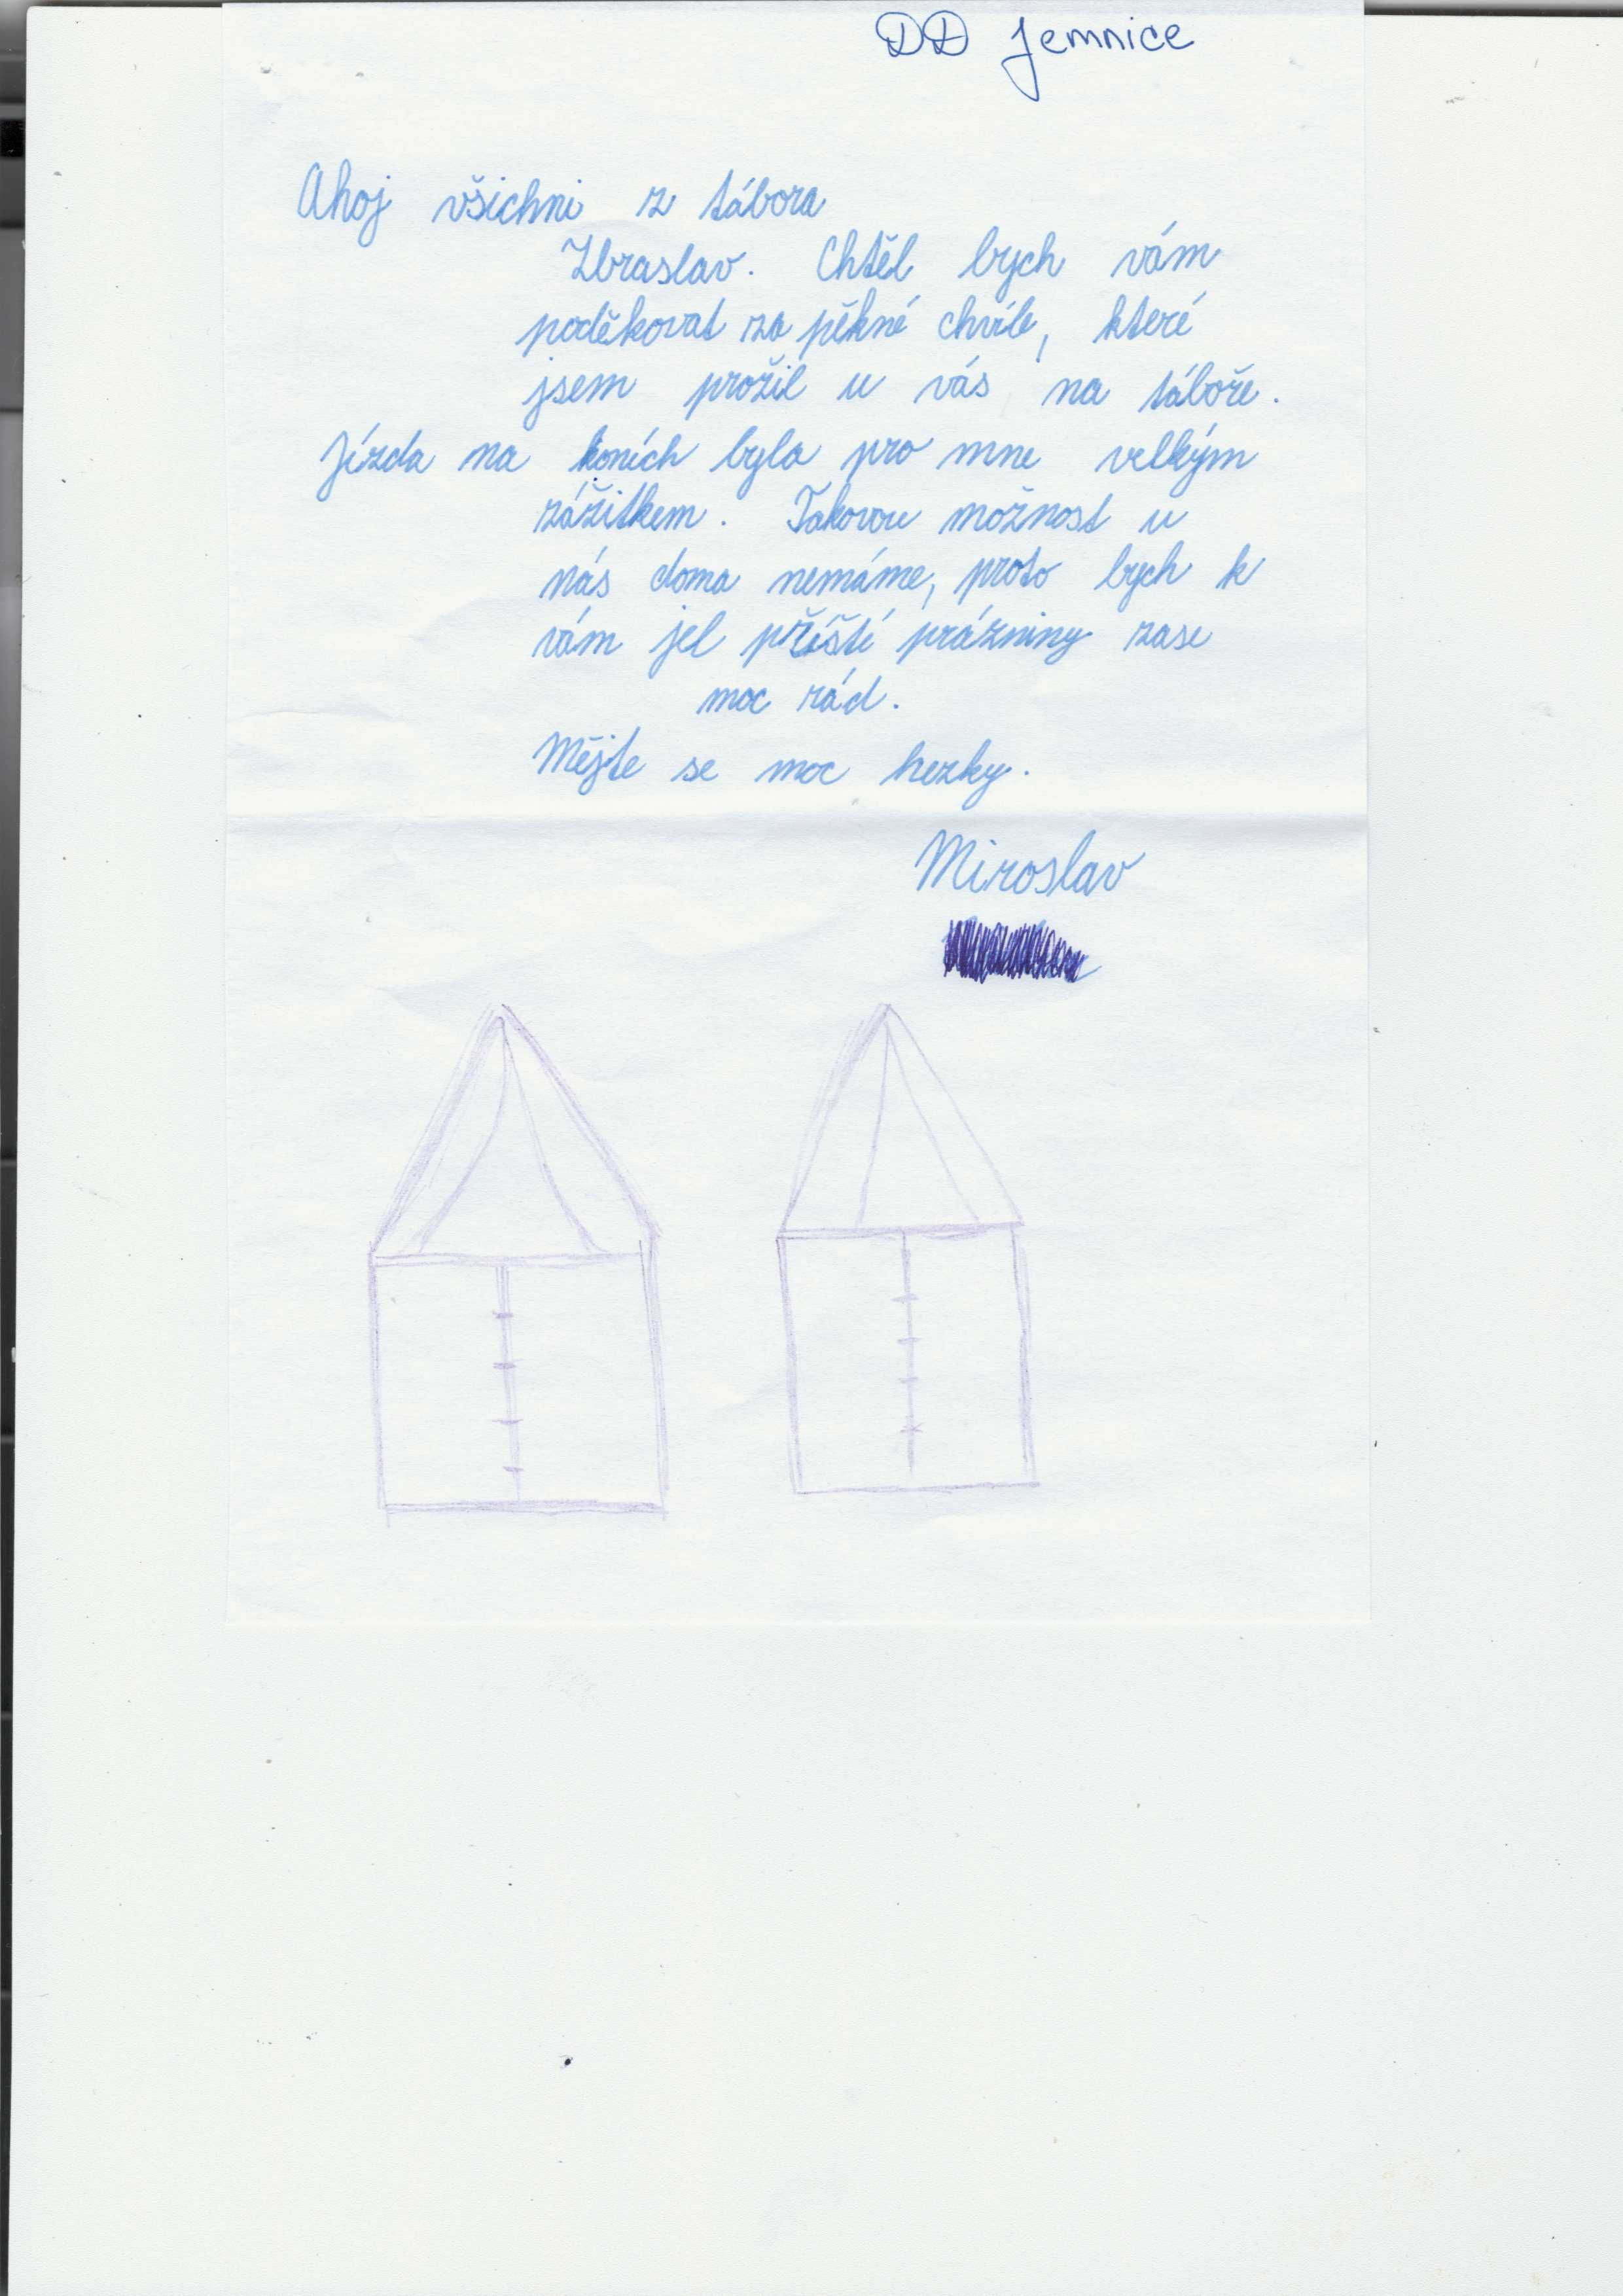 DD Jemnice
Ahoj všichni z tábora
Zbraslav. Chtěl bych vám
poděkovat za pěkné chvíle, které
jsem prožil u vás na táboře.
Jízda na koních byla pro mne velkým
zážitkem. Takovou možnost u
nás doma nemáme, proto bych k
vám jel příští prázniny zase
moc rád.
Mějte se moc hezky.
Miroslav